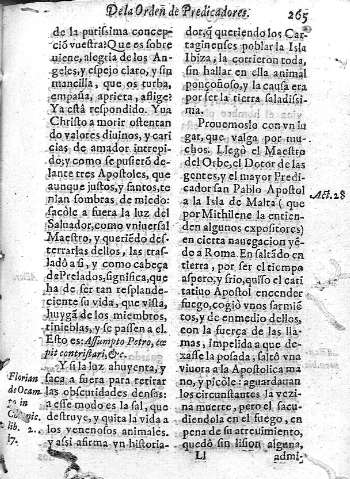 De la Orden de Predicadores. 265
de la purissima concep-
ciõ vuestra? Que es sobre
uiene, alegria de los An-
geles, y espejo claro, y sin
mancilla, que os turba,
empaña, aprieta, aflige?
Ya està respondido. Yua
Christo a morir ostentan
do valores diuinos, y cari
cias de amador intrepi-
do; y como se pusierõ de-
lante tres Apostoles, que
aunque justos, y santos, te
nian sombras de miedo:
sacòle a fuera la luz del
Saluador, como vniuersal
Maestro, y queriẽdo des-
terrarlas dellos, las tras-
ladò a sì, y como cabeça
de Prelados, significa, que
ha de ser tan resplande-
ciente su vida, que vista,
huygã de los miembros,
tinieblas, y se passen a el.
Esto es: Assumpto Petro, cæ
pit contristari, &c.
Y si la luz ahuyenta, y
saca a fuera para retirar
las obscuridades densas:
a esse modo es la sal, que
destruye, y quita la vida a
los venenosos animales.
y assi afirma vn historia-
Florian
de Ocam
po in
lib. 2.
dor, q̃ queriendo los Car-
taginenses poblar la Isla
Ibiza, la corrieron toda,
sin hallar en ella animal
ponçoñoso, y la causa era
por ser la tierra saladissi-
ma.
Prouemoslo con vn lu
gar, que valga por mu-
chos. Llegò el Maestro
del Orbe, el Dotor de las
gentes, y el mayor Predi-
cador san Pablo Apostol
a la Isla de Malta (que
por Mithilene la entien-
den algunos expositores)
en cierta nauegacion yẽ-
do a Roma. En saltãdo en
tierra, por ser el tiempo
aspero, y frio, quiso el cari
tatiuo Apostol encender
fuego, cogiò vnos sarmiẽ-
tos, y de enmedio dellos,
con la fuerça de las lla-
mas, impelida a que de-
xasse la posada, saltò vna
viuora a la Apostolica ma
no, y picòle: aguardauan
los circunstantes la vezi-
na muerte, pero el sacu-
diendola en el fuego, en
pena de su atreuimiento,
quedò sin lision alguna,
Act. 28
Ll admi-